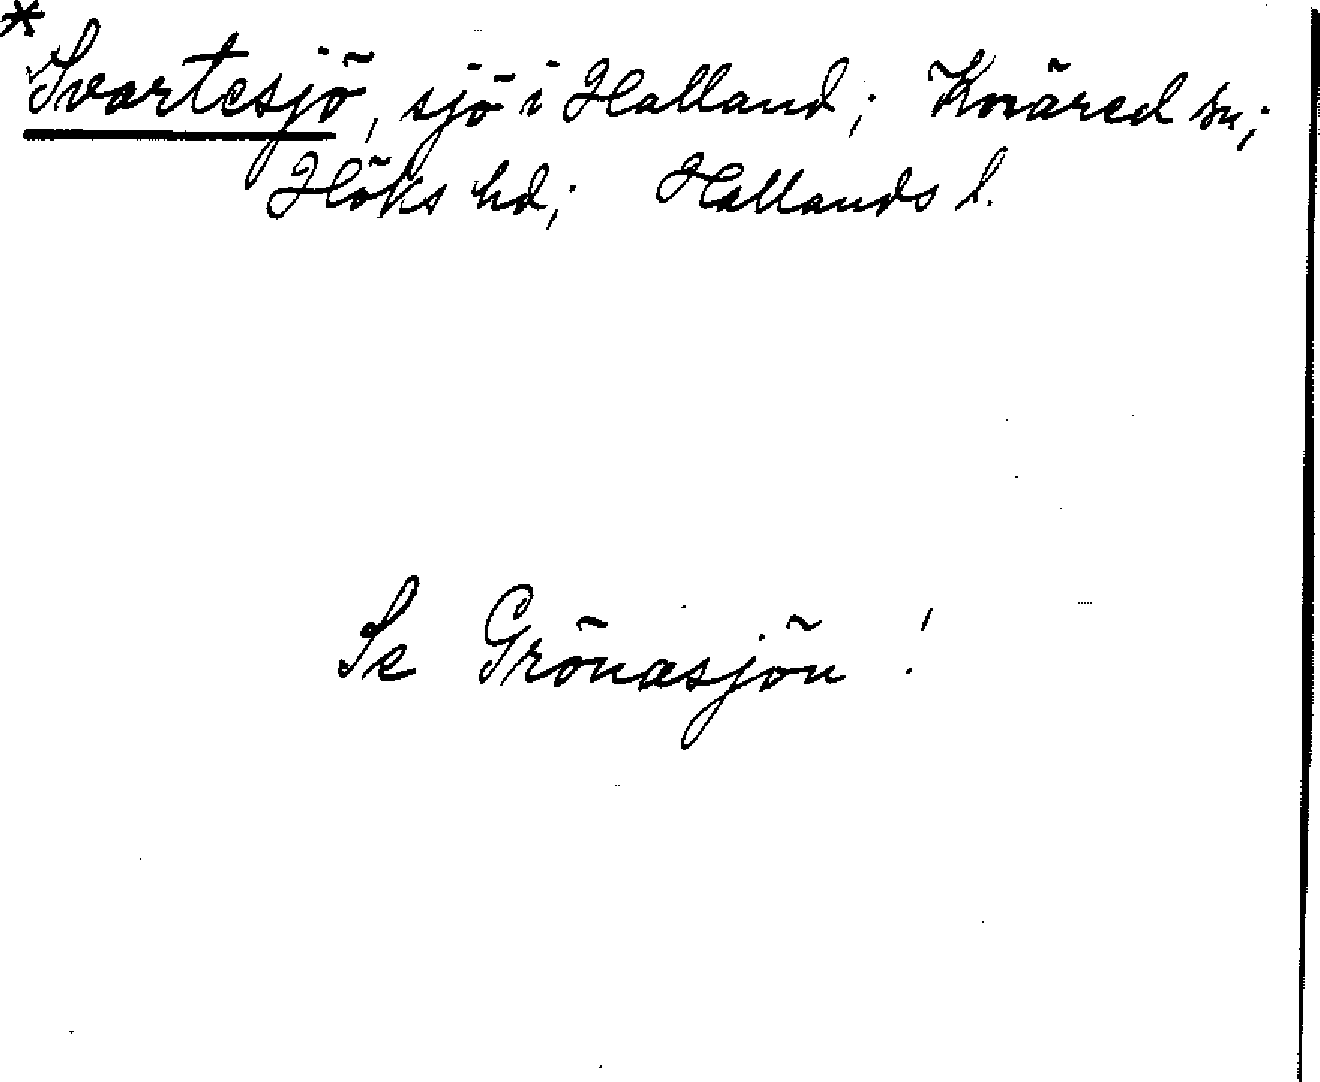 * Svartesjö, sjö i Halland; Knäred sn;
Höks hd; Hallands l.
Se Grönasjön!